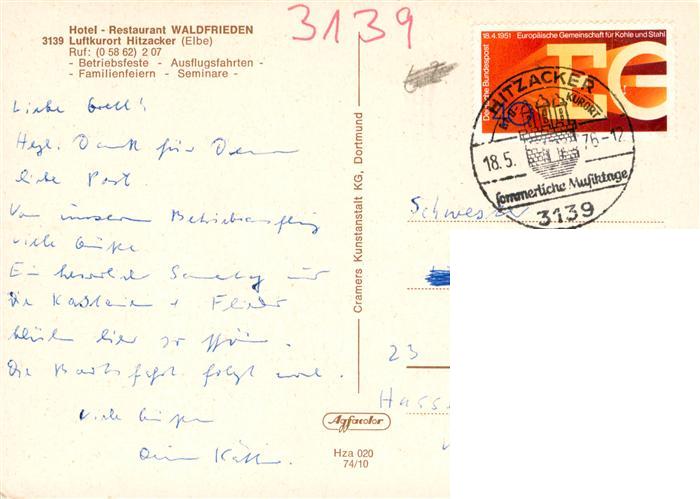 Hotel - Restaurant WALDFRIEDEN
3139 Luftkurort Hitzacker (Elbe)
Ruf: (0 58 62) 2 07
- Betriebsfeste - Ausflugsfahrten -
- Familienfeiern - Seminare -
3139
18.4.1951 Europäische Gemeinschaft für Kohle und Stahl
Deutsche Bundespost
EG
HITZACKER
KURORT
18.5. 76-12
Sommerliche Musiktage
3139
Liebe
Herzl. Dank für Deine
liebe Post.
Von unserem Betriebsausflug
viele Grüße
Ein
die Kastanien + Flieder
blühen hier so schön.
Die folgt
Viele Grüße
Deine
Cramers Kunstanstalt KG, Dortmund
Schwester
23
Agfacolor
Hza 020
74/10